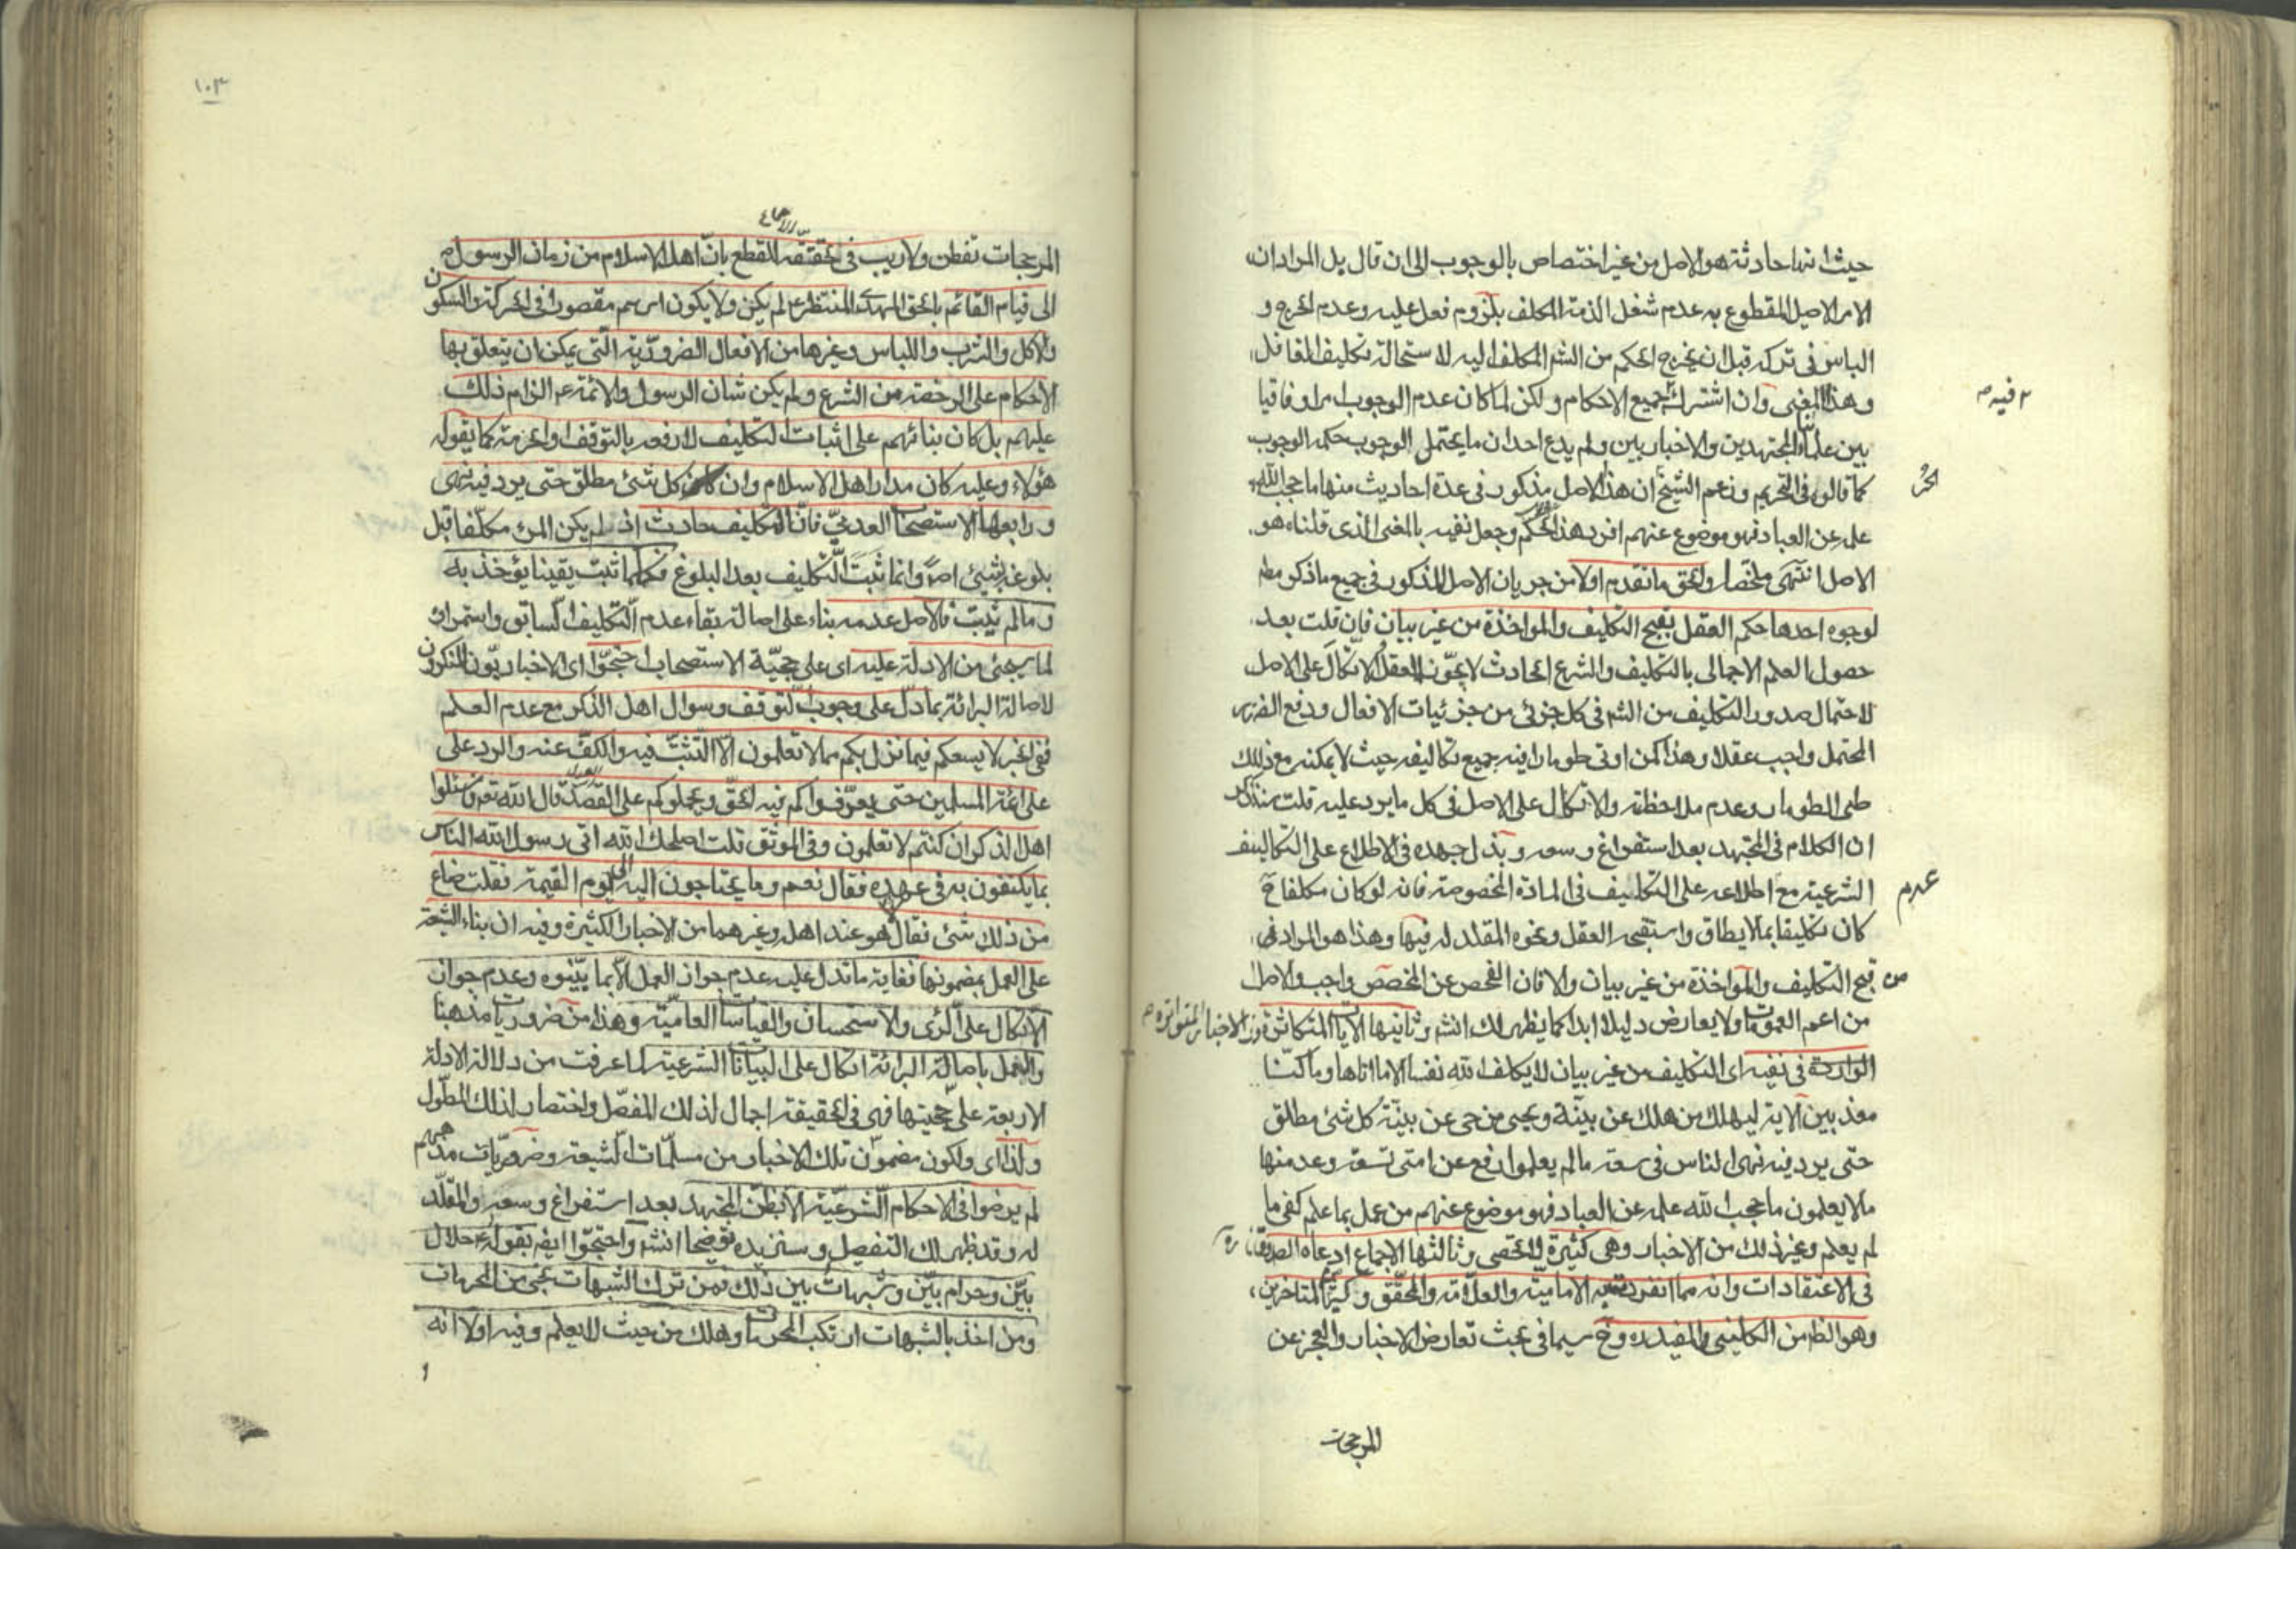 حيث انها حادثة هو الاصل من غير اختصاص بالوجوب الى ان قال بل المراد ان
الامر الاصيل المقطوع به عدم شغل الذمة المكلف بلزوم فعل عليه وعدم الحرج و
الباس فى تركه قبل ان يخرج الحكم من الشم المكلف اليه لاستحالة تكليف الغافل
وهذا المعنى وان اشترك جميع الاحكام ولكن لما كان عدم الوجوب امرا وفاقيا
فيه
بين علماء المجتهدين والاخباريين ولم يدع احد ان ما يحتمل الوجوب حكمه الوجوب
كما قالوا فى التحريم وزعم الشيخ ان هذا الاصل مذكور فى عدة احاديث منها ما حجب الله
الحر
علمه عن العباد فهو موضوع عنهم افرد هذا الحكم وجعل نفيه بالمعنى الذى قلناه هو
الاصل انتهى ملخصا والحق ما تقدم اولا من جريان الاصل المذكور فى جميع ما ذكر مط
لوجوه احدها حكم العقل بقبح التكليف والمواخذة من غير بيان فان قلت بعد
حصول العلم الاجمالى بالتكليف والشرع الحادث لا يجوّز العقل الاتكال على الاصل
لاحتمال صدور التكليف من الشم فى كل جزئى من جزئيات الافعال ودفع الضرر
المحتمل واجب عقلا وهذا كمن اوتى طومارا فيه جميع تكاليفه حيث لا يمكنه مع ذلك
طى الطومار وعدم ملاحظته والاتكال على الاصل فى كل ما يرد عليه قلت
ان الكلام فى المجتهد بعد استفراغ وسعه وبذل جهده فى الاطلاع على التكاليف
الشرعية مع اطلاعه على التكليف فى المادة المخصوصة فانه لو كان مكلفا ح
عدم
كان تكليفا بما لا يطاق واستقبحه العقل ونحوه المقلد له فيها وهذا هو المراد فى
قبح التكليف والمواخذة من غير بيان والا فان الفحص عن المخصص واجب والاصل
من
من اعم العمومات ولا يعارض دليلا ابدا كما يظهر لك انشه وثانيها الايات المتكاثرة والاخبار المتواترة
الواردة فى نفيه اى التكليف من غير بيان لا يكلف الله نفسا الا ما اتاها وما كنّا
معذبين الاية ليهلك من هلك عن بينّة ويحيى من حى عن بينّة كل شئ مطلق
حتى يرد فيه نهى الناس فى سعة ما لم يعلموا رفع عن امتى تسعة وعد منها
ما لا يعلمون ما حجب الله علمه عن العباد فهو موضوع عنهم من عمل بما علم كفى ما
لم يعلم وغير ذلك من الاخبار وهى كثيرة لا تحصى وثالثها الاجماع ادعاه الصدوق ره
فى الاعتقادات وانه مما انفردت به الامامية والعلّامة والمحقّق وكثير المتاخرين
وهو الظ من الكلينى والمفيد ره وخ سيما فى بحث تعارض الاخبار والعجز عن
المرجحات
١٠٣
المرجحات تفطن ولا ريب فى تحققه للقطع بانّ اهل الاسلام من زمان الرسول ص
الاجماع
الى قيام القائم بالحق المهدى المنتظر ع لم يكن ولا يكون امرهم مقصورا فى الحركة والسكون
والاكل والشرب واللباس وغيرها من الافعال الضروريّة الّتى يمكن ان يتعلق بها
الاحكام على الرخصة من الشرع ولم يكن شان الرسول والائمة ع الزام ذلك
عليهم بل كان بنائهم على اثبات التكليف لا رفعه بالتوقف والحرمة كما يقوله
هؤلاء وعليه كان مدار اهل الاسلام وان كل شئ مطلق حتى يرد فيه نهى
ورابعها الاستصحاب العدمىّ فانّ التكليف حادث اذ لم يكن المرء مكلّفا قبل
بلوغه بشيئ اصلا وانما ثبت التّكليف بعد البلوغ فكلما ثبت يقينا يؤخذ به
وما لم يثبت فالاصل عدمه بناء على اصالة بقاء عدم التّكليف السّابق واستمراره
لما يجئ من الادلة عليه اى على حجيّة الاستصحاب احتجّوا اى الاخباريّون المنكرون
لاصالة البرائة بما دلّ على وجوب التّوقف وسوال اهل الذكر مع عدم العلم
ففى الخبر لا يسعكم فيما نزل بكم مما لا تعلمون الّا التّثبّت فيه والكفّ عنه والرد على
على ائمة المسلمين حتى يعرّفواكم فيه الحقّ ويحملوكم على القصد قال الله تعم فاسئلوا
اهل الذكر ان كنتم لا تعلمون وفى الموثق قلت اصلحك الله اتى رسول الله الناس
بما يكتفون به فى عهده فقال نعم وما يحتاجون اليه الى يوم القيمة فقلت ضاع
من ذلك شئ فقال هو عند اهله وغيرهما من الاخبار الكثيرة وفيه ان بناء الشيعة
على العمل بمضمونها فغاية ما تدل عليه عدم جواز العمل الّا بما بيّنوه وعدم جواز
الاتكال على الرّئ والاستحسان والقياسات العاميّة وهذا من ضروريات مذهبنا
والعمل باصالة البرائة اتكال على البيانات الشرعية لما عرفت من دلالة الادلة
الاربعة على حجّيتها فهى فى الحقيقة اجمال لذلك المفصّل واختصار لذلك المطّول
ولذا اى ولكون مضمون تلك الاخبار من مسلّمات الشّيعة وضروريّات مذهبهم
لم يرضوا فى الاحكام الشّرعيّة الّا بظنّ المجتهد بعد استفراغ وسعه والمقلّد
له وقد ظهر لك التفصيل وسنزيده توضيحا انشه واحتجّوا ايضه بقوله ع حلال
بيّن وحرام بيّن وشبهات بين ذلك فمن ترك الشبهات نجى من المحرمات
ومن اخذ بالشبهات ارتكب المحرمات وهلك من حيث لا يعلم وفيه اولا انه